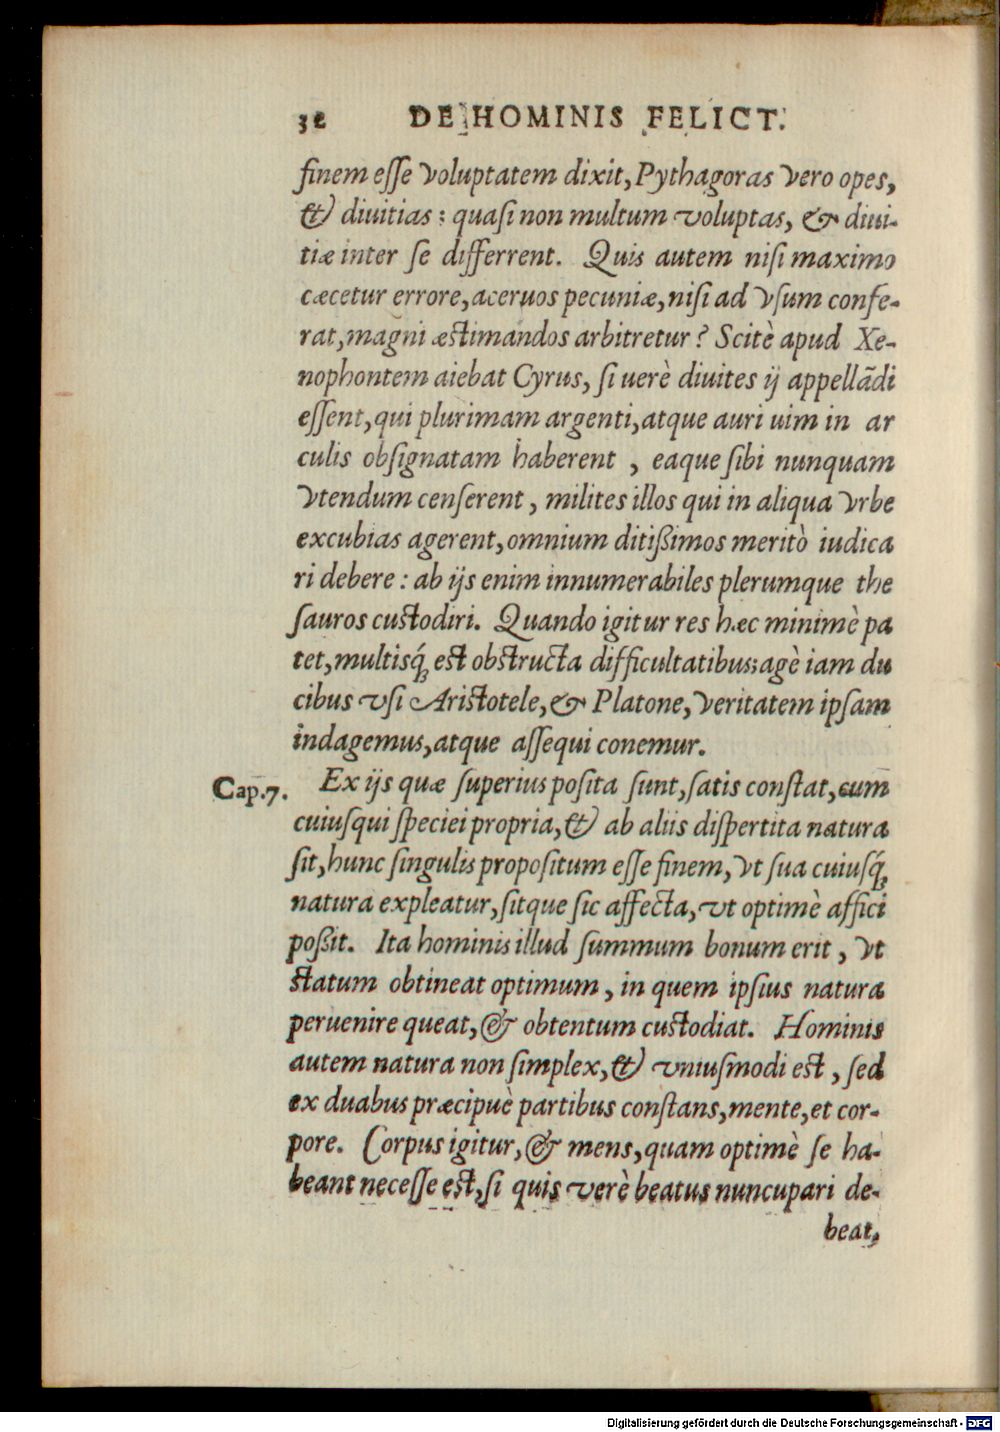 32 DE HOMINIS FELICT.
finem esse voluptatem dixit, Pythagoras vero opes,
& diuitias: quasi non multum voluptas, & diui-
tiæ inter se differrent. Quis autem nisi maximo
cæcetur errore, aceruos pecuniæ, nisi ad vsum confe-
rat, magni æstimandos arbitretur? Scitè apud Xe-
nophontem aiebat Cyrus, si uerè diuites ij appellãdi
essent, qui plurimam argenti, atque auri uim in ar
culis obsignatam haberent, eaque sibi nunquam
vtendum censerent, milites illos qui in aliqua vrbe
excubias agerent, omnium ditißimos meritò iudica
ri debere: ab ijs enim innumerabiles plerumque the
sauros custodiri. Quando igitur res hæc minimè pa
tet, multisq́; est obstructa difficultatibus; agè iam du
cibus vsi Aristotele, & Platone, veritatem ipsam
indagemus, atque assequi conemur.
Cap.7. Ex ijs quæ superius posita sunt, satis constat, cum
cuiusqui speciei propria, & ab aliis dispertita natura
sit, hunc singulis propositum esse finem, vt sua cuiusq́;
natura expleatur, sitque sic affecta, vt optimè affici
poßit. Ita hominis illud summum bonum erit, vt
statum obtineat optimum, in quem ipsius natura
peruenire queat, & obtentum custodiat. Hominis
autem natura non simplex, & vniusmodi est, sed
ex duabus præcipuè partibus constans, mente, et cor-
pore. Corpus igitur, & mens, quam optimè se ha-
beant necesse est, si quis verè beatus nuncupari de-
beat,
Digitalisierung gefördert durch die Deutsche Forschungsgemeinschaft - DFG